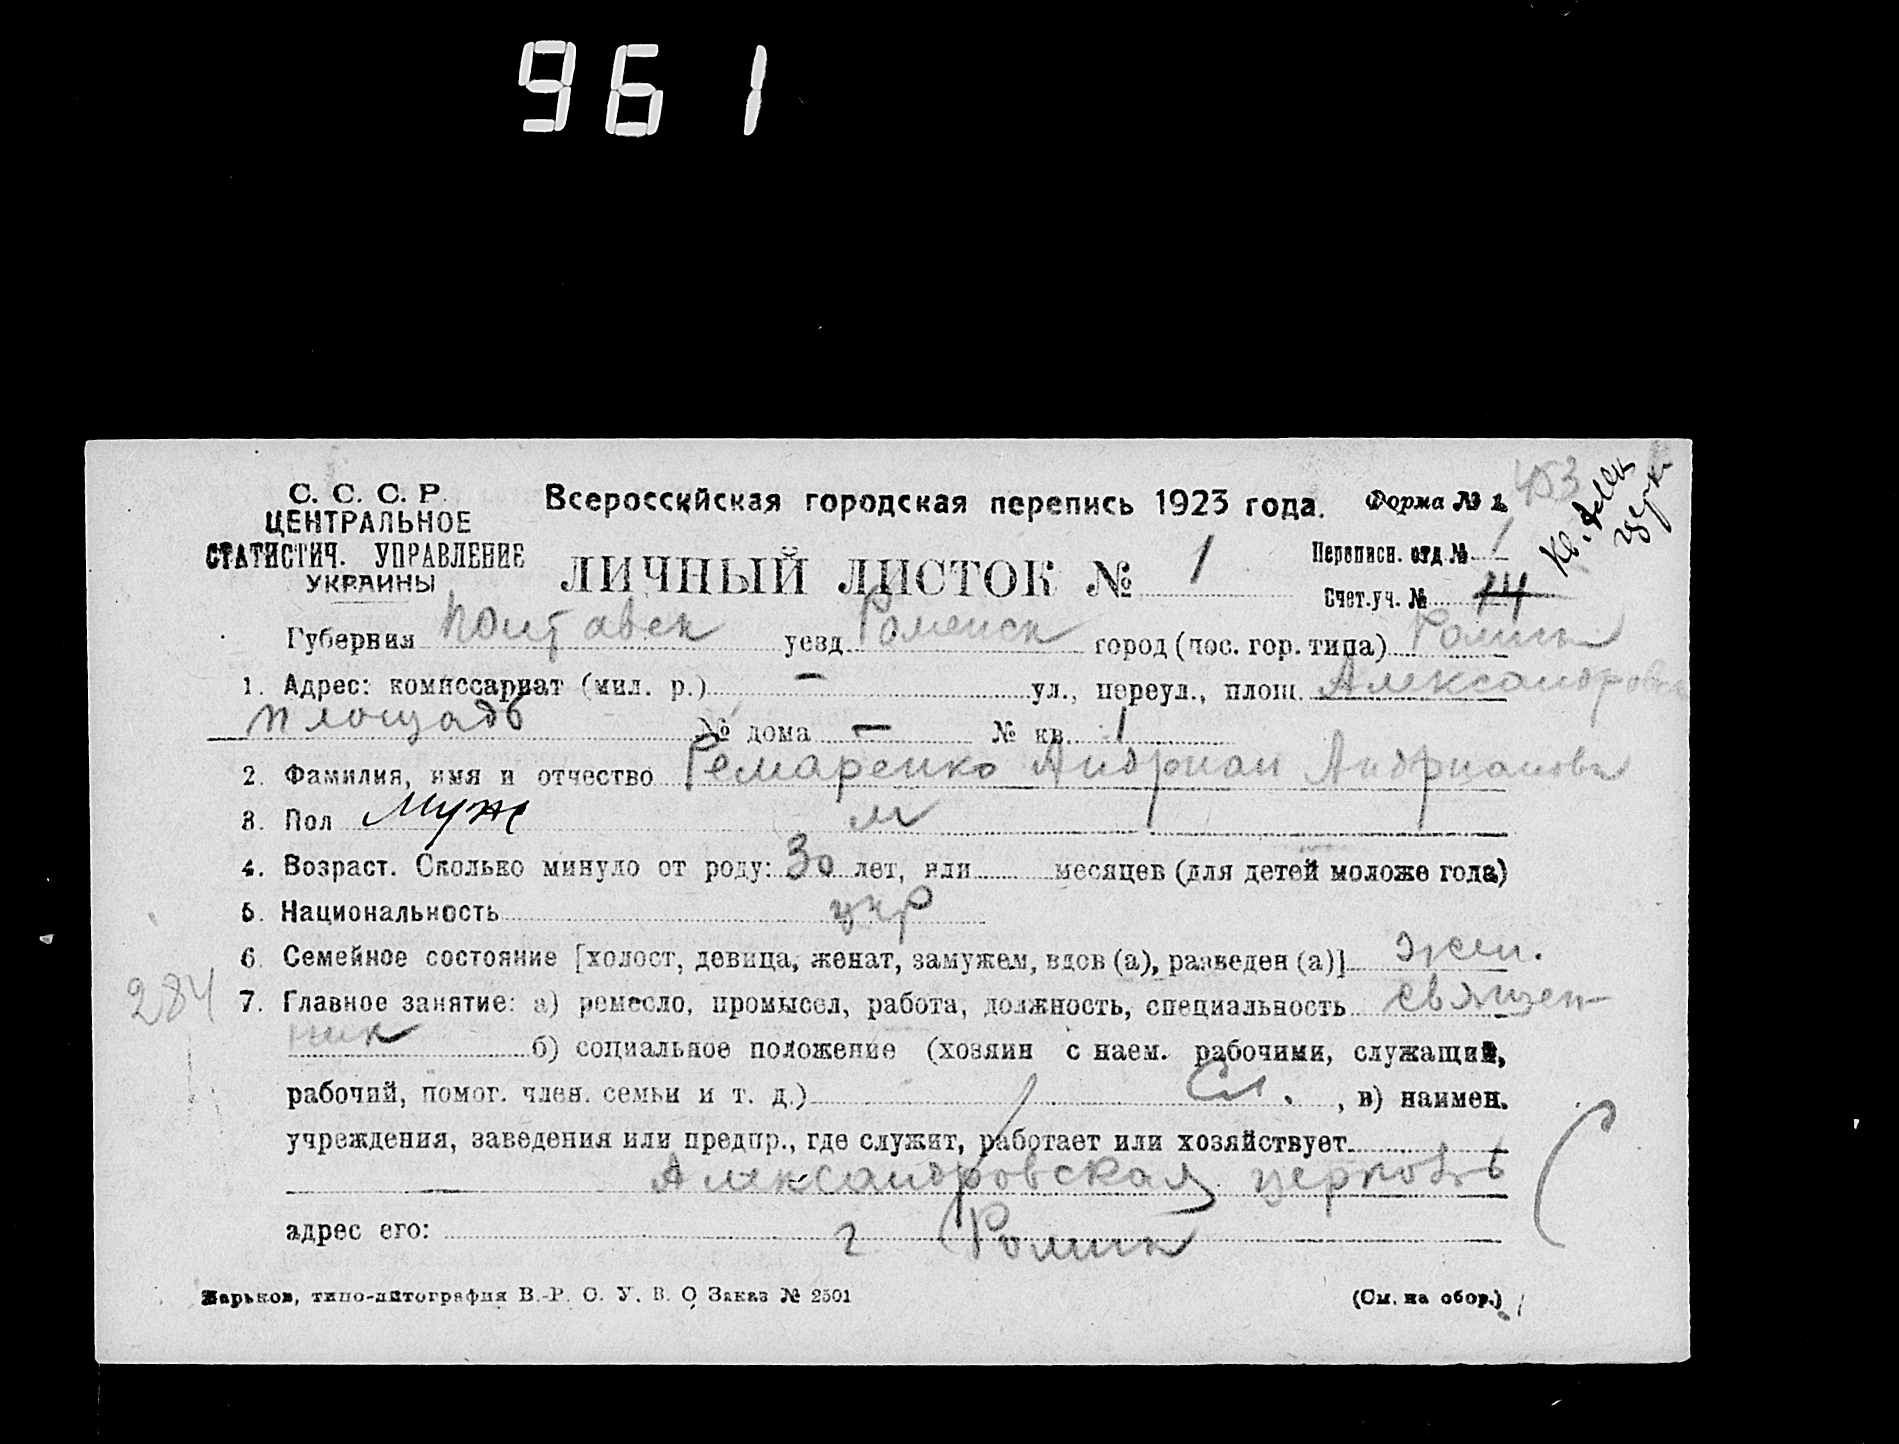 961
С. С. С. Р.
ЦЕНТРАЛЬНОЕ
СТАТИСТИЧ. УПРАВЛЕНИЕ
УКРАИНЫ
Всероссийская городская перепись 1923 года. Форма № 1. 453
ЛИЧНЫЙ ЛИСТОК № 1
Переписн. отд. № 1
Счет. уч. № 14
Губерния Полтавск уезд Роменск город (пос. гор. типа) Ромны
1. Адрес: комиссариат (мил. р.) — ул., переул., площ. Александровск
площадь № дома — № кв. 1
2. Фамилия, имя и отчество Гемаренко Андриан Андрианови
3. Пол Муж м
4. Возраст. Сколько минуло от роду: 30 лет, или месяцев (для детей моложе года)
5. Национальность укр
6. Семейное состояние [холост, девица, женат, замужем, вдов (а), разведен (а)] жен.
284
7. Главное занятие: а) ремесло, промысел, работа, должность, специальность священ-
ник б) социальное положение (хозяин с наем. рабочими, служащий,
рабочий, помог. член. семьи и т. д.) Сл. , в) наимен.
учреждения, заведения или предпр., где служит, работает или хозяйствует
Александровская церковь
адрес его: г Ромны
Харьков, типо-литография В.-Р. С. У. В. О. Заказ № 2501 (См. на обор.)